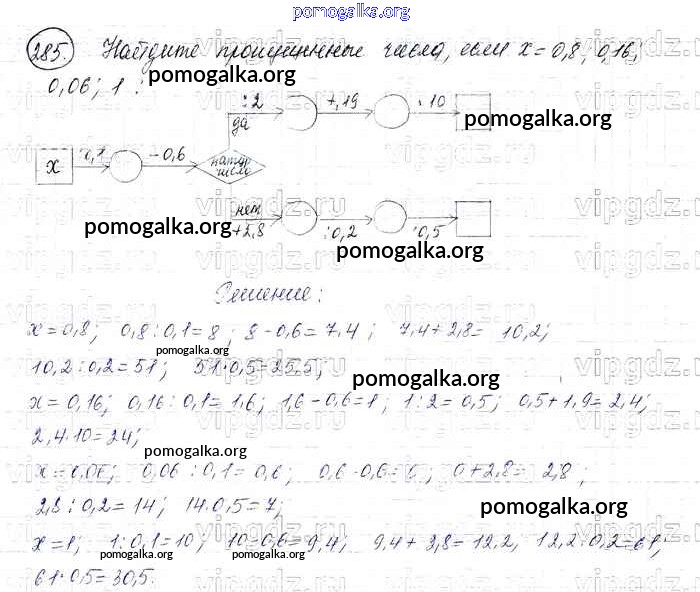 pomogalka.org
285. Найдите пропущенные числа, если x = 0,8; 0,16;
0,06; 1 :
pomogalka.org
:2 +1,9 ·10
да
pomogalka.org
x :0,1 -0,6 натур. число
нет
+2,8 :0,2 ·0,5
pomogalka.org
pomogalka.org
Решение:
x = 0,8; 0,8 : 0,1 = 8 ; 8 - 0,6 = 7,4 ; 7,4 + 2,8 = 10,2;
pomogalka.org
10,2 : 0,2 = 51 ; 51 · 0,5 = 25,5;
pomogalka.org
x = 0,16; 0,16 : 0,1 = 1,6; 1,6 - 0,6 = 1 ; 1 : 2 = 0,5; 0,5 + 1,9 = 2,4;
2,4 · 10 = 24;
pomogalka.org
x = 0,06; 0,06 : 0,1 = 0,6; 0,6 - 0,6 = 0; 0 + 2,8 = 2,8 ;
2,8 : 0,2 = 14; 14 · 0,5 = 7;
pomogalka.org
x = 1; 1 : 0,1 = 10; 10 - 0,6 = 9,4; 9,4 + 2,8 = 12,2, 12,2 : 0,2 = 61;
pomogalka.org pomogalka.org
61 · 0,5 = 30,5.